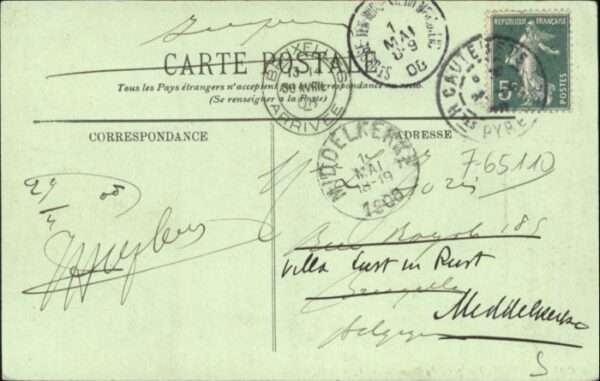 RÉPUBLIQUE FRANÇAISE
5c
CARTE POSTALE
Tous les Pays étrangers n'acceptent pas la Correspondance au recto.
(Se renseigner à la Poste)
CORRESPONDANCE
ADRESSE
BRUXELLES
30 AVRIL
ARRIVÉE
1
MAI
8-9
08
CAUTERETS
Htes PYRE
MIDDELKERKE
MAI
18-19
1908
7-65110
29/4 08
Rue Royale 185
Villa Lust in Rust
Bruxelles
Meddelkerke
Belgique
5